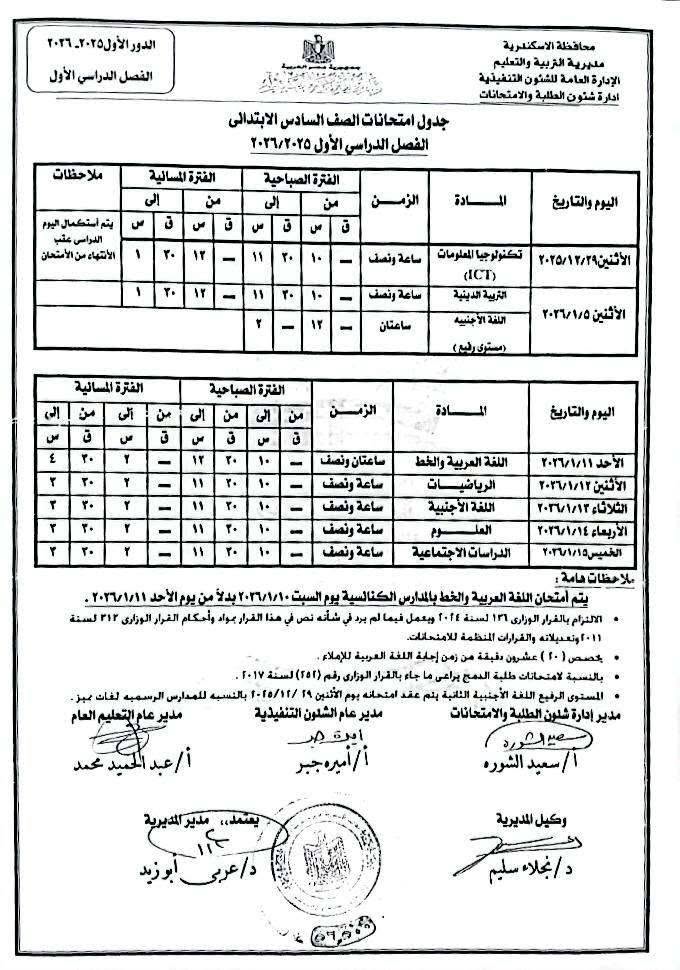 محافظة الاسكندرية
مديرية التربية والتعليم
الإدارة العامة للشئون التنفيذية
ادارة شئون الطلبة والامتحانات
جمهورية مصر العربية
الدور الأول ٢٠٢٥ـ ٢٠٢٦
الفصل الدراسي الأول
جدول امتحانات الصف السادس الابتدائى
الفصل الدراسي الأول ٢٠٢٦/٢٠٢٥
اليوم والتاريخ المـــادة الزمـن الفترة الصباحية الفترة المسائية ملاحظات
من إلى من إلى
ق س ق س ق س ق س
الأثنين ٢٠٢٥/١٢/٢٩ تكنولوجيا المعلومات (ICT) ساعة ونصف — ١٠ ٣٠ ١١ — ١٢ ٣٠ ١ يتم أستكمال اليوم الدراسى عقب الأنتهاء من الأمتحان
الأثنين ٢٠٢٦/١/٥ التربية الدينية ساعة ونصف — ١٠ ٣٠ ١١ — ١٢ ٣٠ ١
اللغة الأجنبيه (مستوى رفيع) ساعتان — ١٢ — ٢
اليوم والتاريخ المـــادة الزمـن الفترة الصباحية الفترة المسائية
من إلى من إلى من إلى من إلى
ق س ق س ق س ق س
الأحد ٢٠٢٦/١/١١ اللغة العربية والخط ساعتان ونصف — ١٠ ٣٠ ١٢ — ٢ ٣٠ ٤
الأثنين ٢٠٢٦/١/١٢ الرياضيـــات ساعة ونصف — ١٠ ٣٠ ١١ — ٢ ٣٠ ٣
الثلاثاء ٢٠٢٦/١/١٣ اللغة الأجنبية ساعة ونصف — ١٠ ٣٠ ١١ — ٢ ٣٠ ٣
الأربعاء ٢٠٢٦/١/١٤ العلـــوم ساعة ونصف — ١٠ ٣٠ ١١ — ٢ ٣٠ ٣
الخميس ٢٠٢٦/١/١٥ الدراسات الاجتماعية ساعة ونصف — ١٠ ٣٠ ١١ — ٢ ٣٠ ٣
ملاحظات هامة :
يتم أمتحان اللغة العربية والخط بالمدارس الكنائسية يوم السبت ٢٠٢٦/١/١٠ بدلاً من يوم الأحد ٢٠٢٦/١/١١ .
• الالتزام بالقرار الوزارى ١٣٦ لسنة ٢٠٢٤ ويعمل فيما لم يرد في شأنه نص في هذا القرار بمواد وأحكام القرار الوزارى ٣١٣ لسنة
٢٠١١ وتعديلاته والقرارات المنظمة للامتحانات.
• يخصص (٢٠) عشرون دقيقة من زمن إجابة اللغة العربية للإملاء .
• بالنسبة لامتحانات طلبة الدمج يراعى ما جاء بالقرار الوزارى رقم (٢٥٢) لسنة ٢٠١٧ .
• المستوى الرفيع اللغة الأجنبية الثانية يتم عقد امتحانه يوم الأثنين ٢٩ /١٢ /٢٠٢٥ بالنسبه للمدارس الرسميه لغات مميز .
مدير إدارة شئون الطلبة والامتحانات مدير عام الشئون التنفيذية مدير عام التعليم العام
سعيد الشوره أميرة جبر
أ/ سعيد الشوره أ/ أميره جبر أ/ عبد الحميد محمد
وكيل المديرية يعتمد،، مدير المديرية
د/ نجلاء سليم د/ عربى أبوزيد